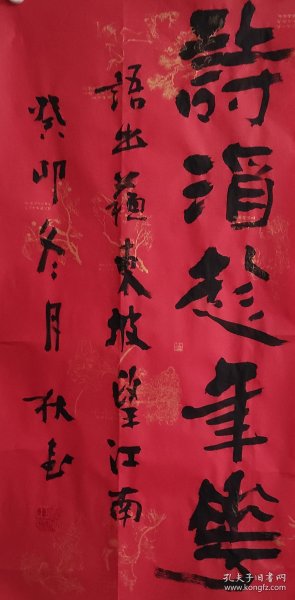 詩酒趁年華
語出蘇東坡望江南
癸卯冬月秋
孔夫子旧书网